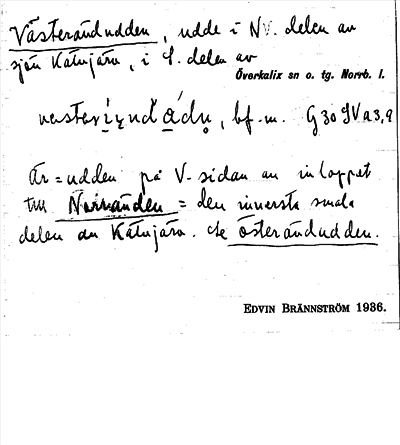 Västerändudden, udde i NV. delen av
sjön Kätujärv, i S. delen av
Överkalix sn o. tg. Norrb. l.
, bf. m. G 30 IV a 3, 9
är = udden på V-sidan av inloppet
till Norränden = den innersta smala
delen av Kätujärv. Se Österändudden.
EDVIN BRÄNNSTRÖM 1936.